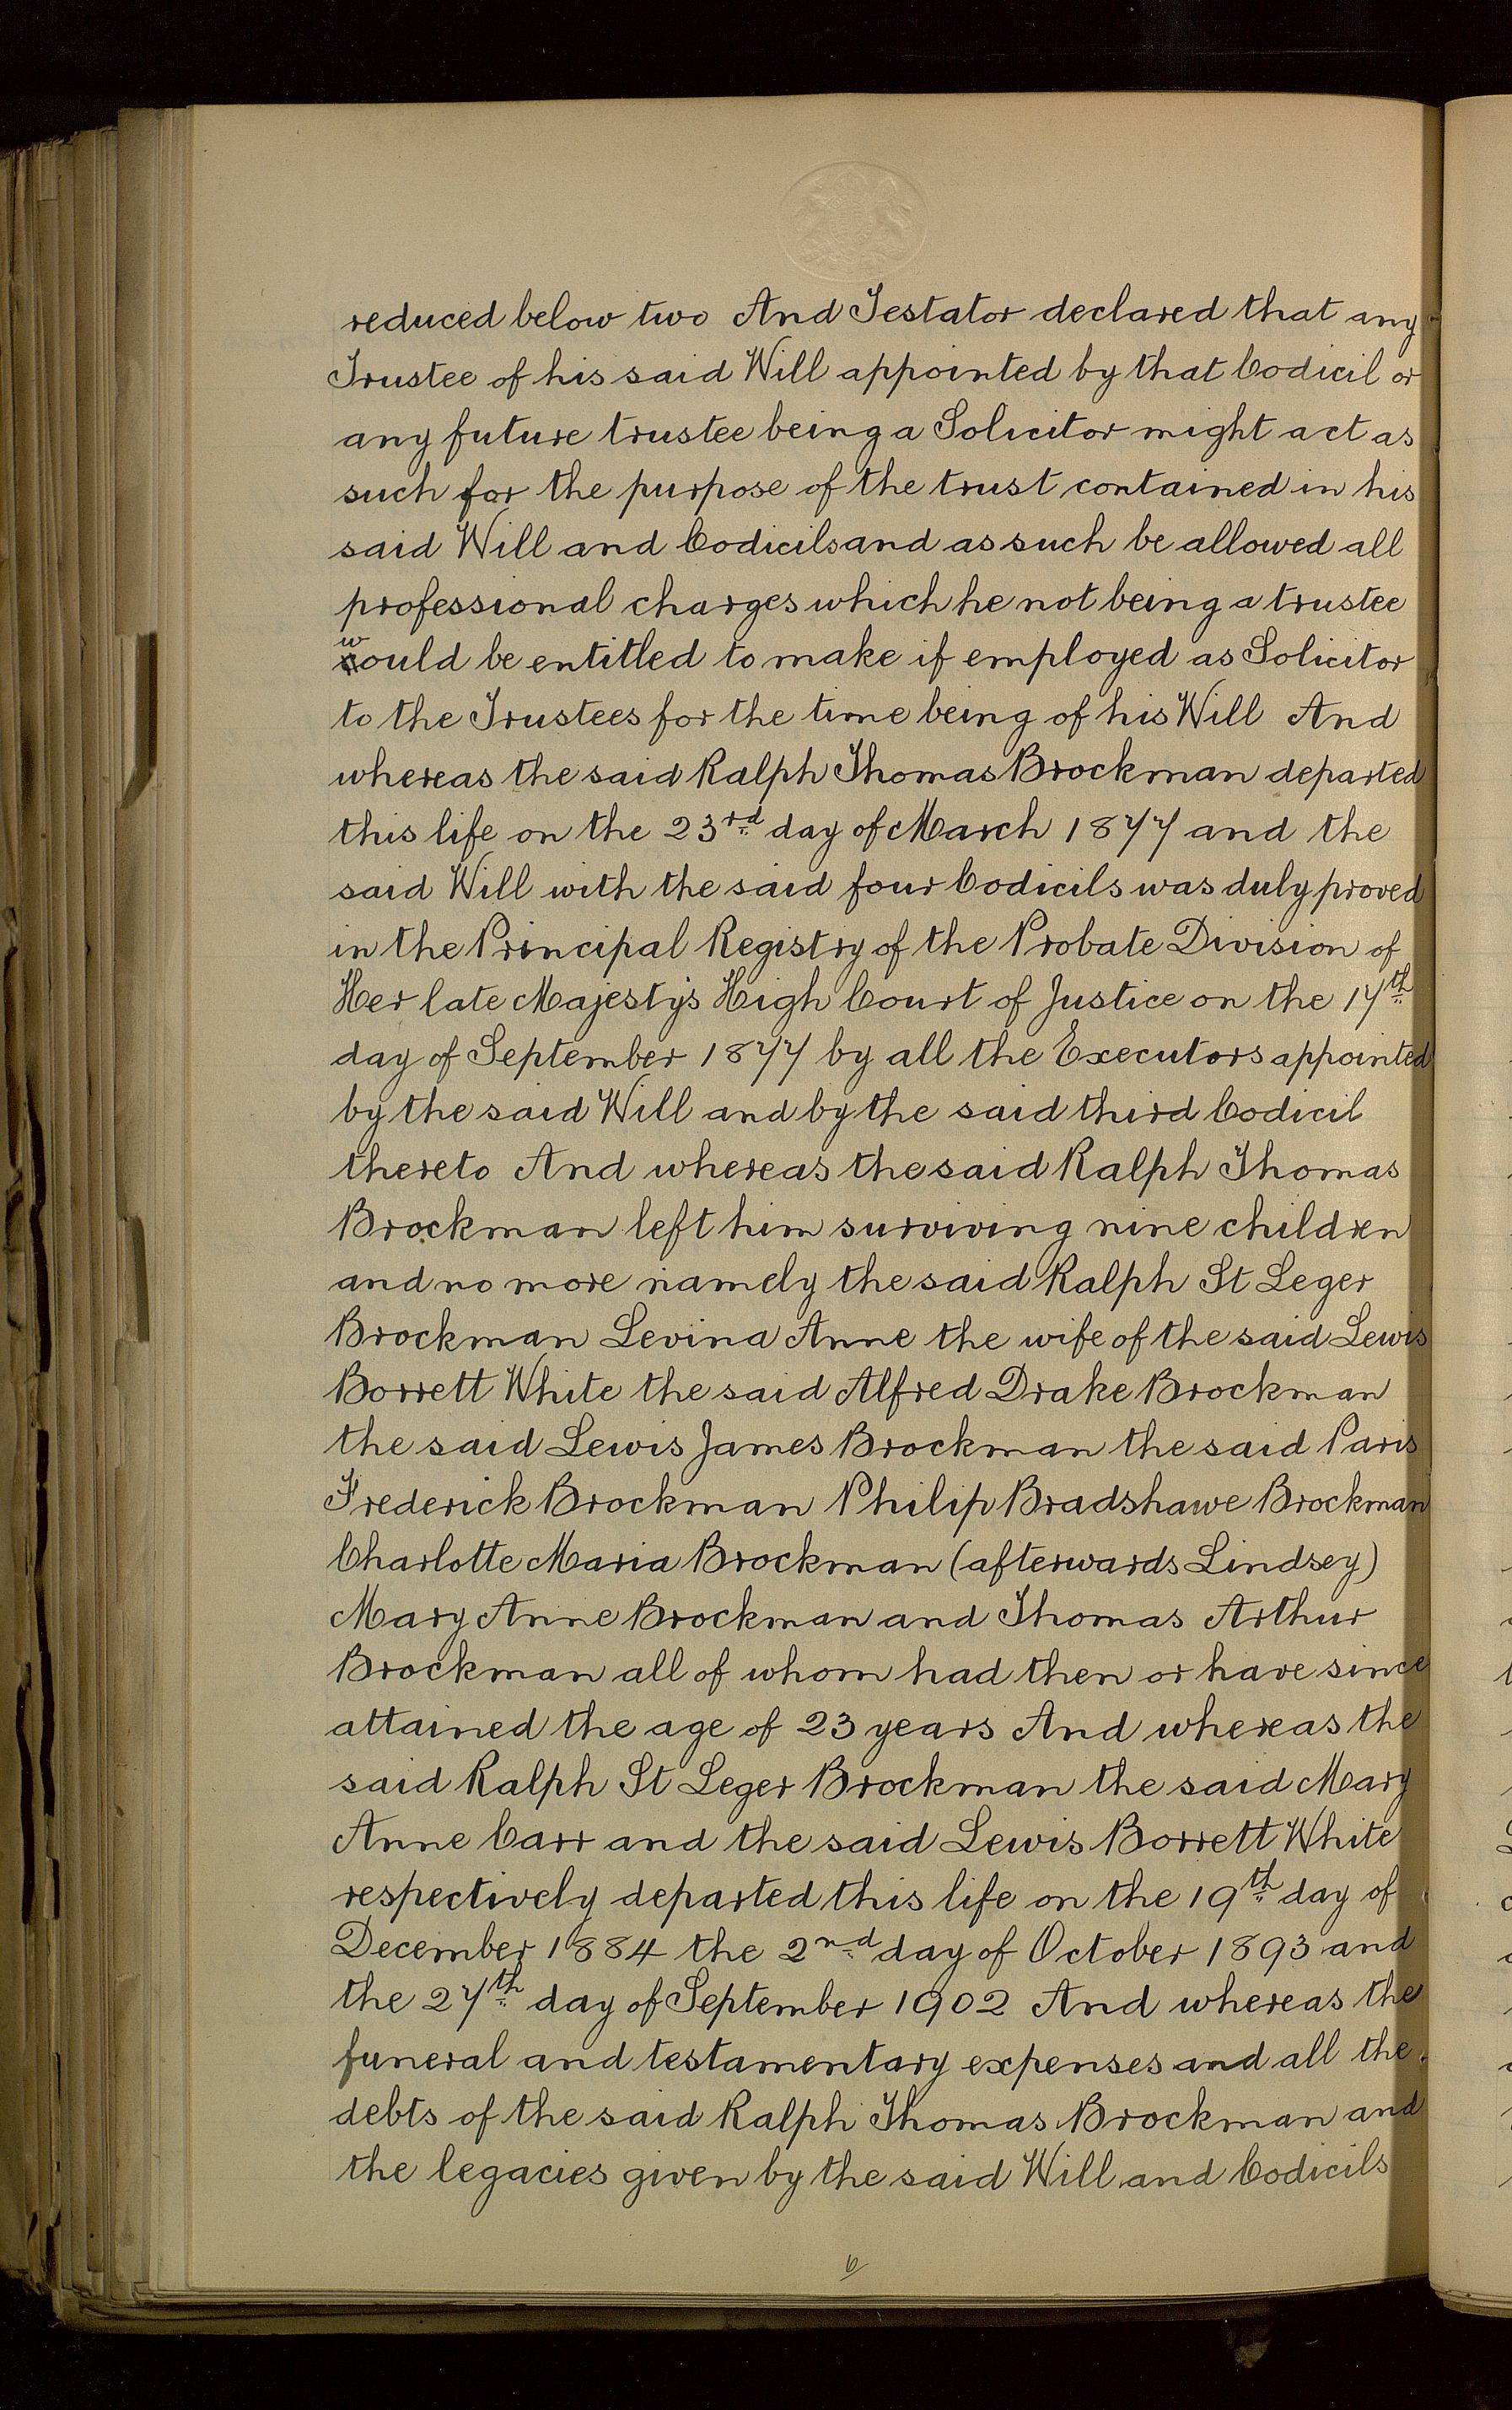 reduced below two And Testator declared that any
Trustee of his said Will appointed by that Codicil or
any future trustee being a Solicitor might act as
such for the purpose of the trust contained in his
said Will and Codicils and as such be allowed all
professional charges which he not being a trustee
would be entitled to make if employed as Solicitor
to the Trustees for the time being of his Will And
whereas the said Ralph Thomas Brockman departed
this life on the 23rd day of March 1877 and the
said Will with the said four Codicils was duly proved
in the Principal Registry of the Probate Division of
Her late Majesty's High Court of Justice on the 17th
day of September 1877 by all the Executors appointed
by the said Will and by the said third Codicil
thereto And whereas the said Ralph Thomas
Brockman left him surviving nine children
and no more namely the said Ralph St Leger
Brockman Levina Anne the wife of the said Lewis
Borrett White the said Alfred Drake Brockman
the said Lewis James Brockman the said Paris
Frederick Brockman Philip Bradshawe Brockman
Charlotte Maria Brockman (afterwards Lindsey)
Mary Anne Brockman and Thomas Arthur
Brockman all of whom had then or have since
attained the age of 23 years And whereas the
said Ralph St Leger Brockman the said Mary
Anne Carr and the said Lewis Borrett White
respectively departed this life on the 19th day of
December 1884 the 2nd day of October 1893 and
the 27th day of September 1902 And whereas the
funeral and testamentary expenses and all the
debts of the said Ralph Thomas Brockman and
the legacies given by the said Will and Codicils
6